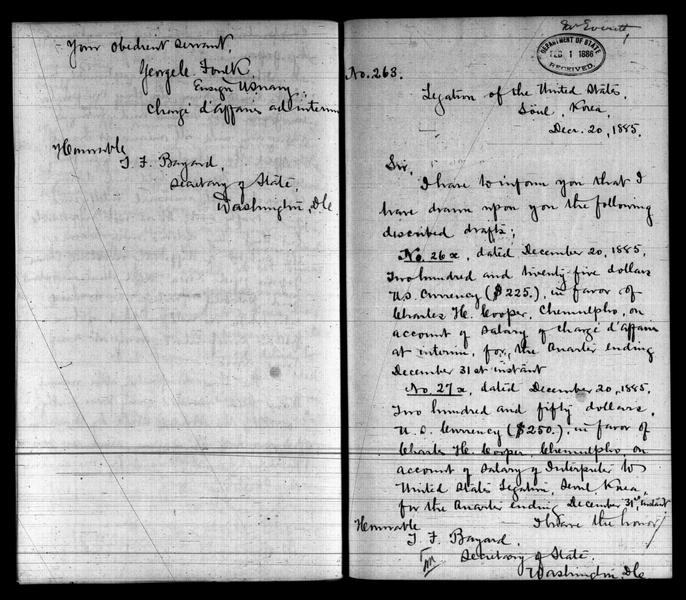 Your obedient servant,
George C. Foulk,
Ensign U.S. Navy,
Chargé d'affaires ad interim
Honorable
T. F. Bayard,
Secretary of State,
Washington, D.C.
Mr Everett,
DEPARTMENT OF STATE
FEB 1 1886
RECEIVED
No. 263.
Legation of the United States,
Söul, Korea,
Decr. 20, 1885.
Sir,
I have to inform you that I
have drawn upon you the following
described drafts;
No. 26x, dated December 20, 1885,
Two hundred and twenty-five dollars
U.S. Currency ($225.), in favor of
Charles H. Cooper, Chemulpho, on
account of Salary of chargé d'affaires
at interim, for, the Quarter ending
December 31st instant
No. 27x, dated December 20, 1885,
Two hundred and fifty dollars,
U.S. Currency ($250.), in favor of
Charles H. Cooper Chemulpho, on
account of Salary of Interpreter to
United States Legation, Seoul Korea,
for the Quarter ending December 31st instant
I have the honor
Honorable
T. F. Bayard.
Secretary of State.
Washington, D.C.